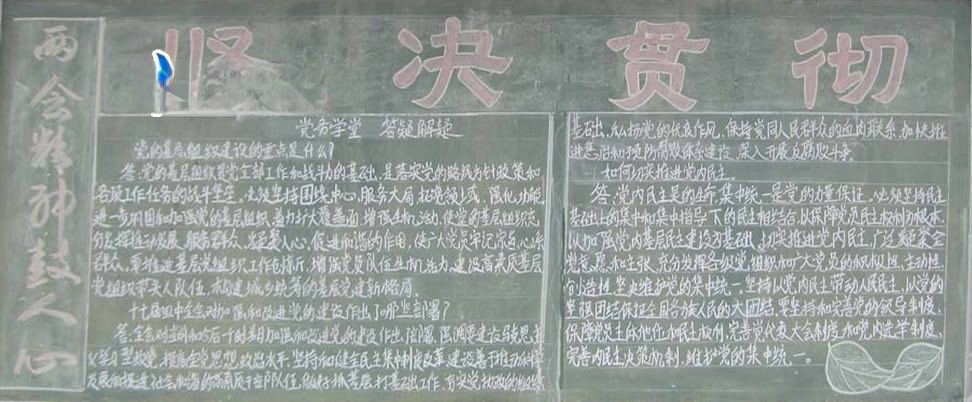 两会精神鼓人心
坚决贯彻
党务学堂 答疑解疑
党的基层组织建设的重点是什么?
答:党的基层组织是党全部工作和战斗力的基础,是落实党的路线方针政策和
各项工作任务的战斗堡垒。必须坚持围绕中心,服务大局,拓宽领域,强化功能,
进一步巩固和加强党的基层组织,着力扩大覆盖面,增强生机活力,使党的基层组织充
分发挥推动发展、服务群众、凝聚人心、促进和谐的作用,使广大党员牢记宗旨心系
群众。要推进基层党组织工作创新,增强党员队伍生机活力,建设高素质基层
党组织带头人队伍,构建城乡统筹的基层党建新格局。
十七届四中全会对加强和改进党的建设作出了哪些部署?
答:全会对当前和今后一个时期加强和改进党的建设作出部署,强调要建设
型政党,提高全党思想政治水平,坚持和健全民主集中制度改革,建设善于推动科学
发展和促进社会和谐的高素质干部队伍,做好抓基层打基础工作,夯实党执政的组织
基础,弘扬党的优良作风,保持党同人民群众的血肉联系,加快推
进惩治和预防腐败体系建设,深入开展反腐败斗争。
如何切实推进党内民主。
答:党内民主是党的生命,集中统一是党的力量保证。必须坚持民主
基础上的集中和集中指导下的民主相结合,以保障党员民主权利为根本,
以加强党内基层民主建设为基础,切实推进党内民主,广泛凝聚全
党意愿和主张,充分发挥各级党组织和广大党员的积极性、主动性、
创造性,坚决维护党的集中统一。坚持以党内民主带动人民民主,以党的
坚强团结保证全国各族人民的大团结。要坚持和完善党的领导制度,
保障党员主体地位和民主权利,完善党代表大会制度和党内选举制度,
完善党内民主决策机制,维护党的集中统一。